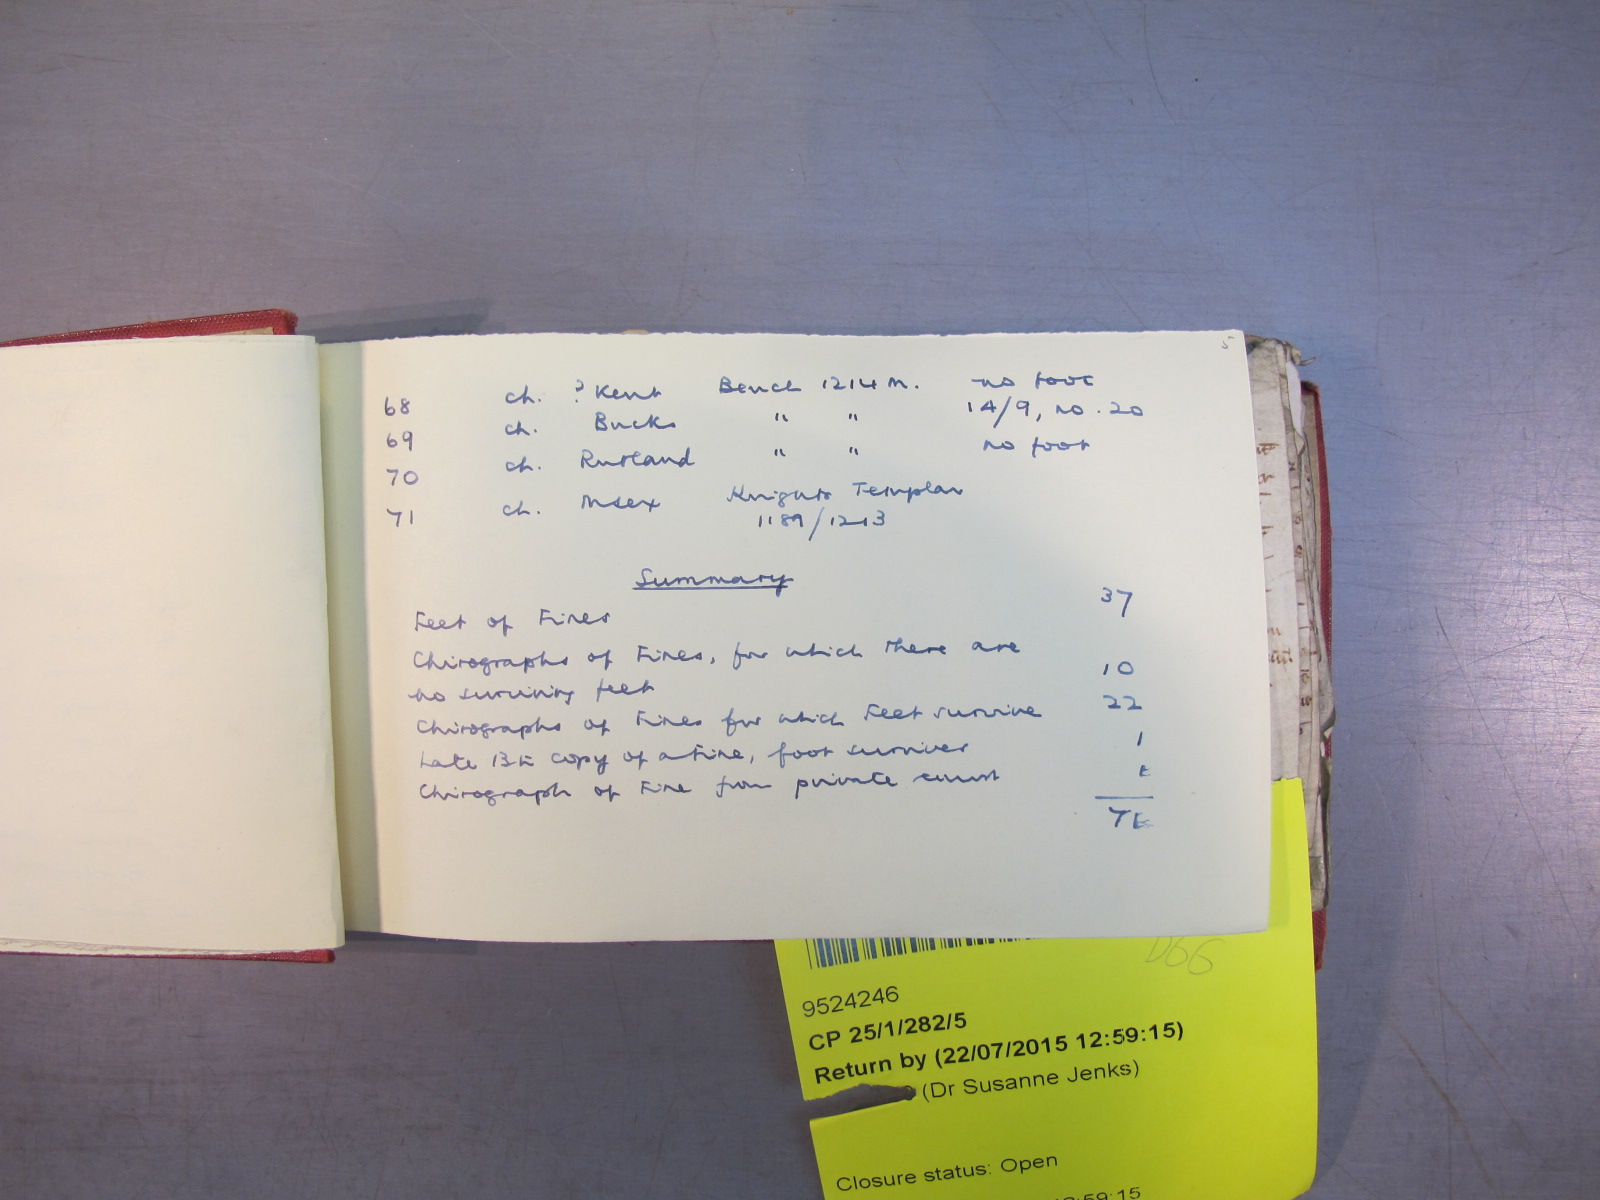 5
68 ch. ? Kent Bench 1214 M. no foot
69 ch. Bucks " " 14/9, no. 20
70 ch. Rutland " " no foot
71 ch. Msex Knights Templar
1189/1213
Summary
Feet of Fines 37
Chirographs of Fines, for which there are
no surviving feet 10
Chirographs of Fines for which Feet survive 22
Late 13th copy of a Fine, foot survives 1
Chirograph of Fine from private court
D66
9524246
CP 25/1/282/5
Return by (22/07/2015 12:59:15)
(Dr Susanne Jenks)
Closure status: Open
12:59:15